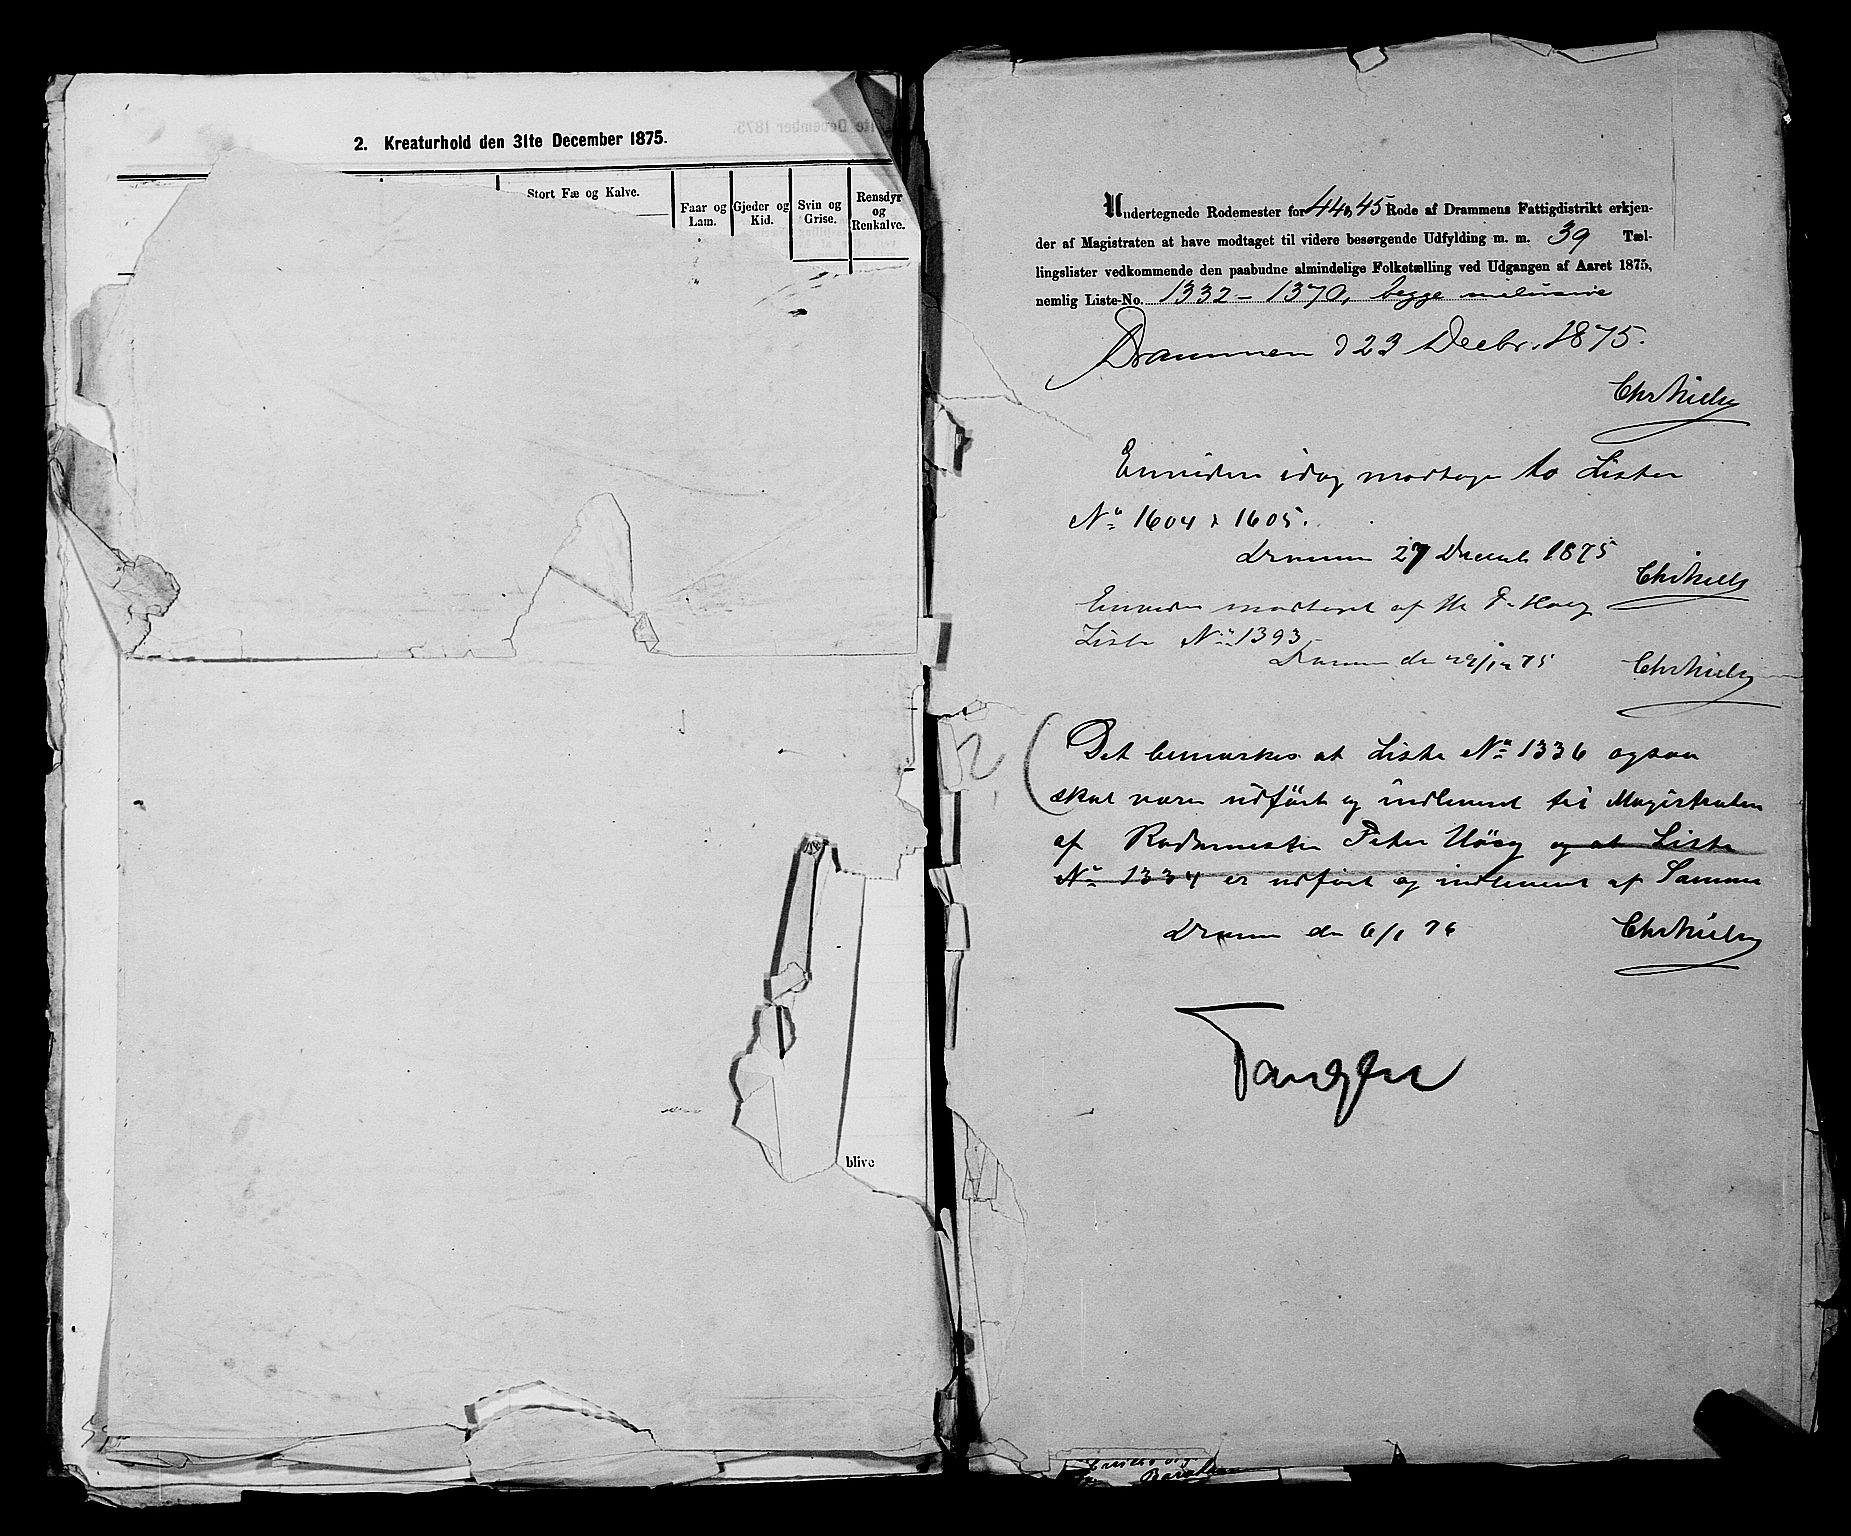 2. Kreaturhold den 31te December 1875.
Stort Fæ og Kalve.
Faar og Lam.
Gjeder og Kid.
Svin og Grise.
Rensdyr og Renkalve.
blive
Undertegnede Rodemester for 44 & 45 Rode af Drammens Fattigdistrikt erkjen-
der af Magistraten at have modtaget til videre besørgende Udfylding m. m. 39 Tæl-
lingslister vedkommende den paabudne almindelige Folketælling ved Udgangen af Aaret 1875,
nemlig Liste-No. 1332 - 1370, begge inclusive
Drammen d 23 Decbr. 1875.
Chr Niels
Enviden idag modtaget to Lister
No 1604 & 1605.
Drammen 27 Decemb 1875
Chr Niels
modtaget af Hr P. Høeg
Liste No 1393
Drammen den 29/12 75
Chr Niels
Det bemærkes at Liste No 1336 ogsaa
skal være udført og indleveret til Magistraten
af Rodemester Peter Høeg og at Liste
No 1334 er udført og indleveret af Samme
Drammen den 6/1 76
Chr Niels
Tangen